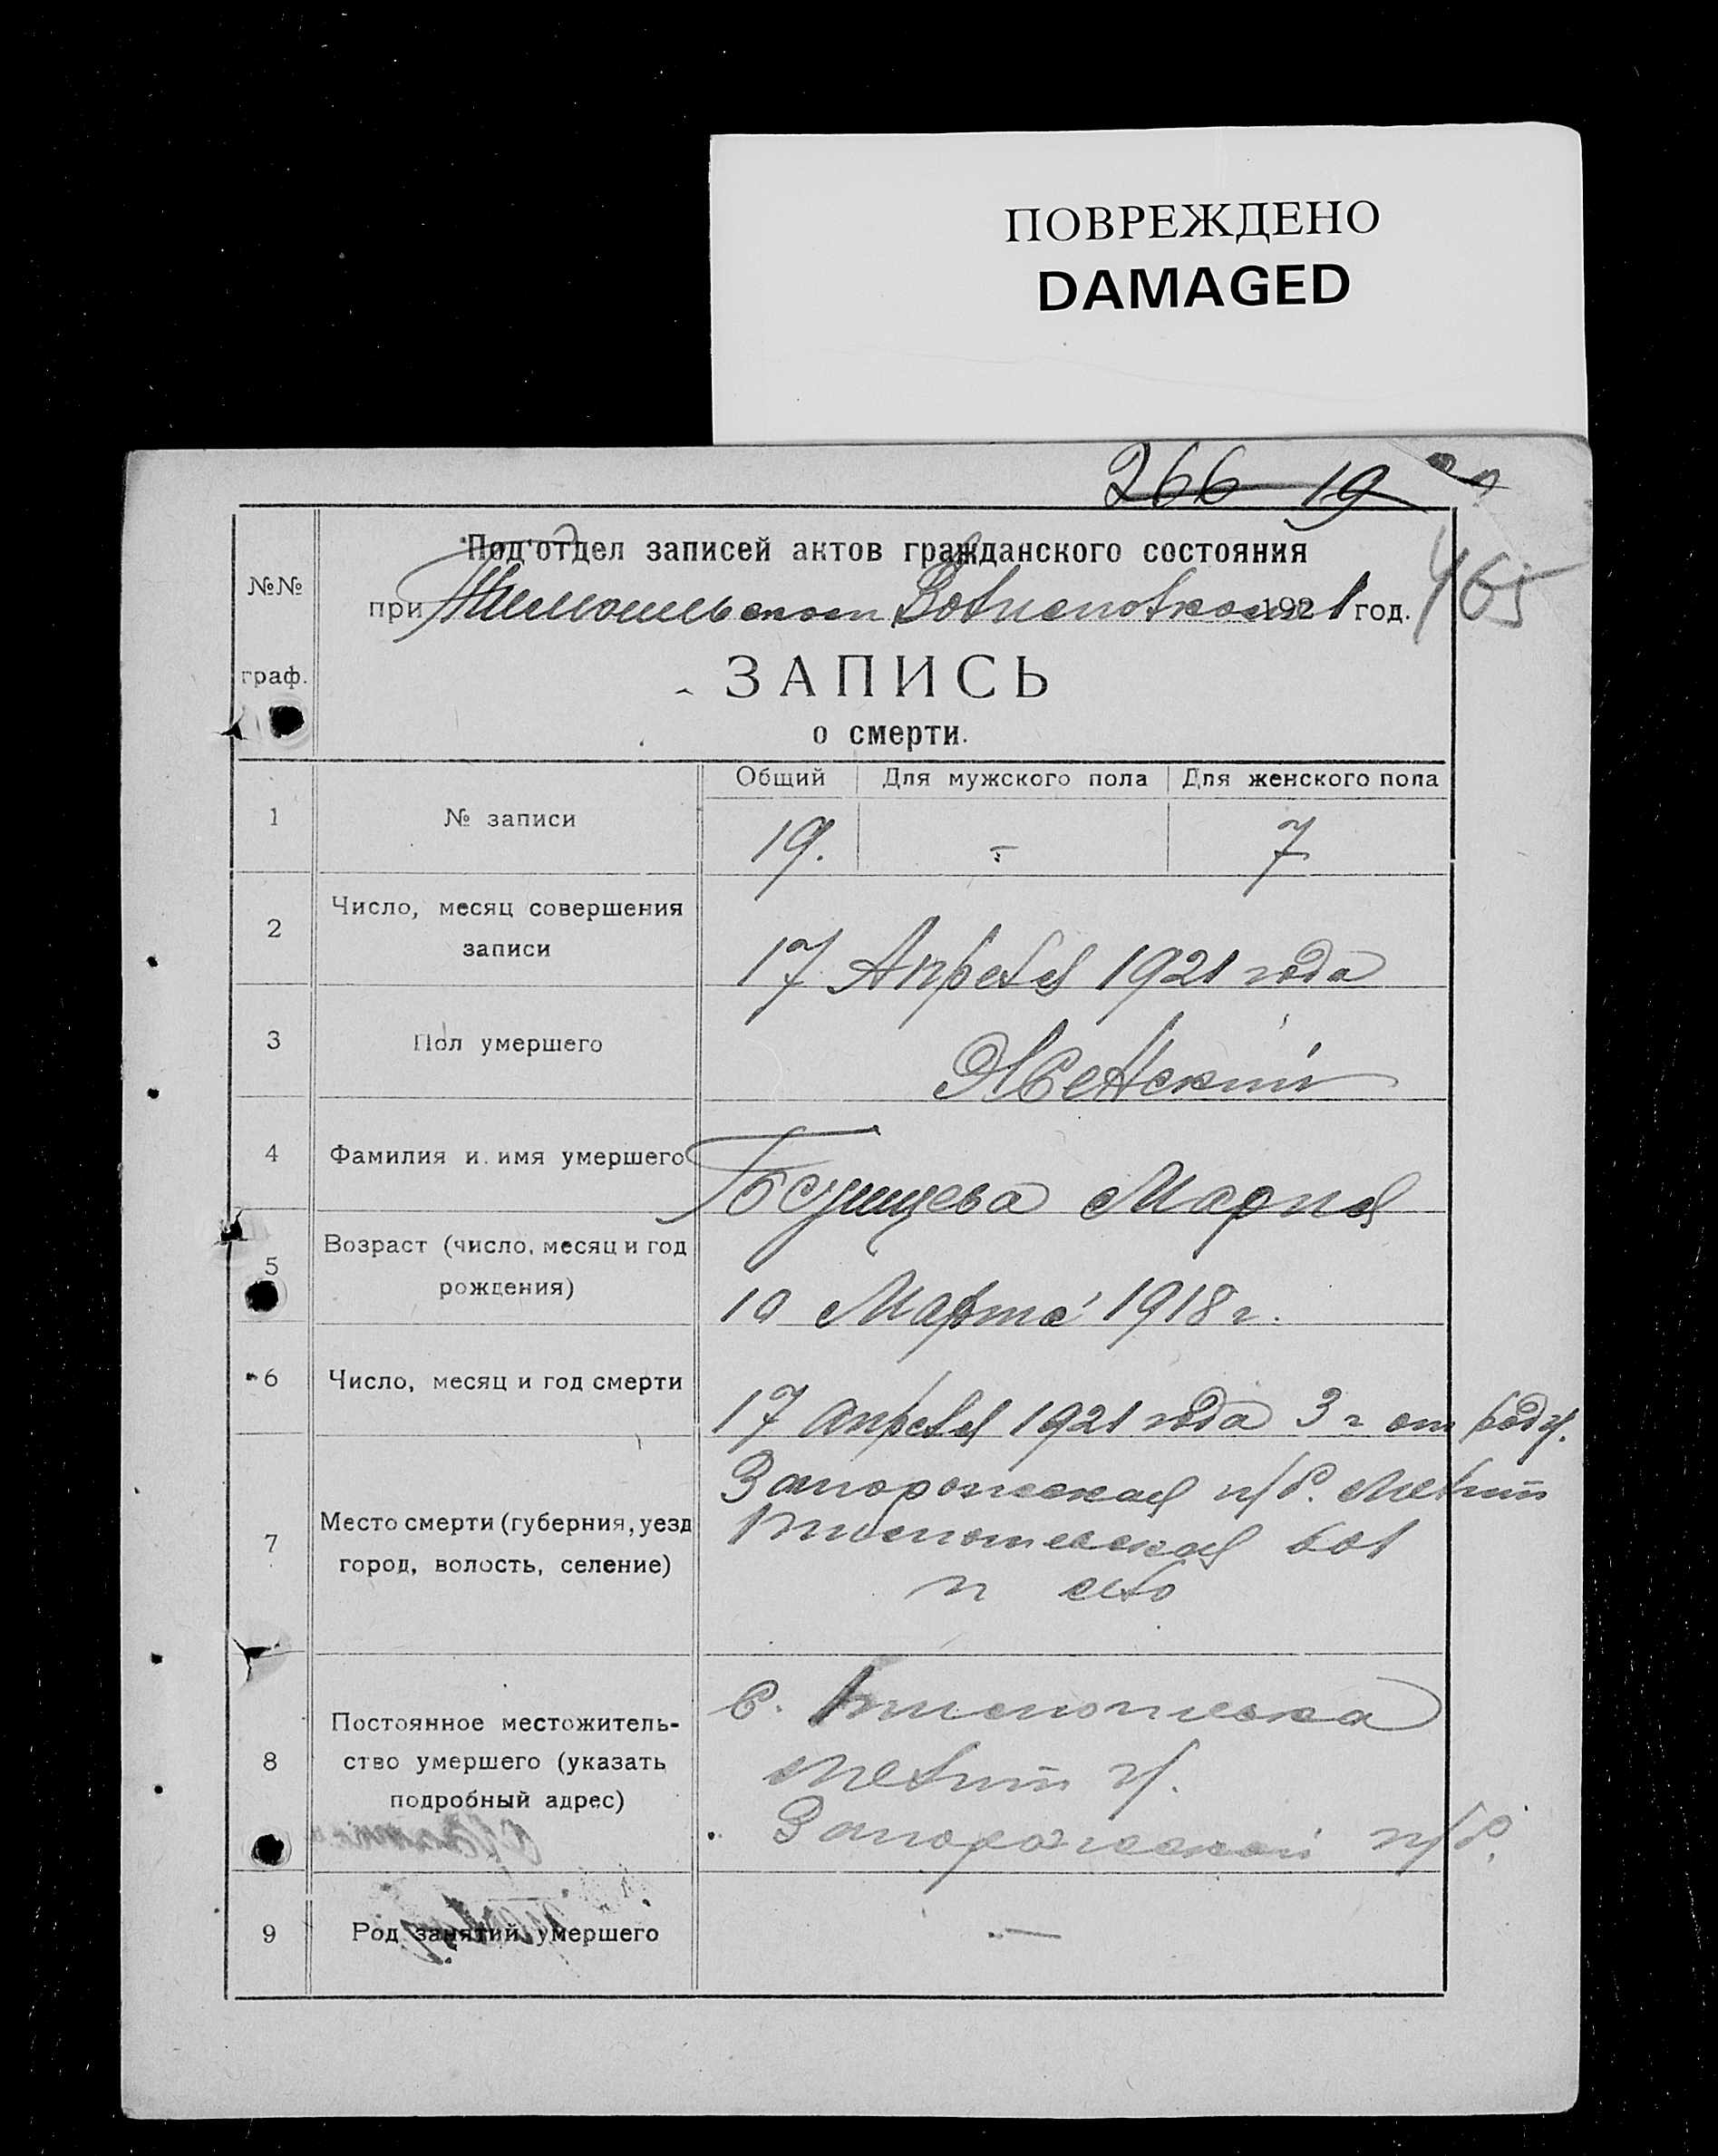 ПОВРЕЖДЕНО
DAMAGED
266 19
465
№№ граф.
Под'отдел записей актов гражданского состояния
при Волисполкоме 1921 год.
ЗАПИСЬ
о смерти.
Общий Для мужского пола Для женского пола
1 № записи 19. - 7
2 Число, месяц совершения
записи
17 Апреля 1921 года
3 Пол умершего Женский
4 Фамилия и имя умершего Мария
5 Возраст (число, месяц и год
рождения)
10 Марта 1918 г.
6 Число, месяц и год смерти
17 апреля 1921 года 3 г от роду.
7 Место смерти (губерния, уезд
город, волость, селение)
Запорожская губ. Мелит
вол
и село
8 Постоянное местожитель-
ство умершего (указать
подробный адрес)
С.
Мелит у.
Запорожской губ.
9 Род занятий умершего —